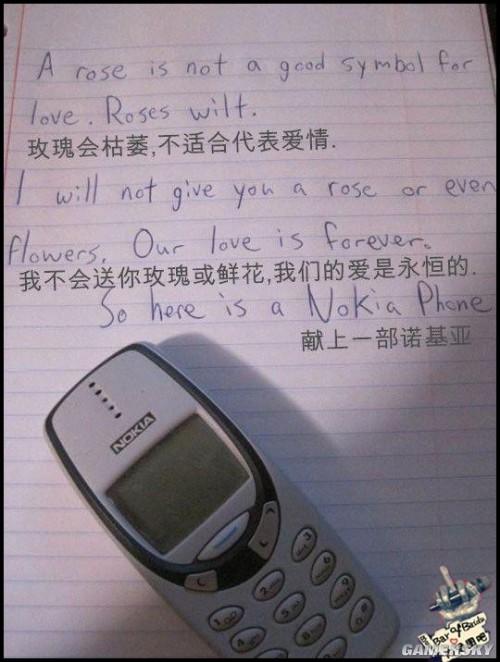 A rose is not a good symbol for
love. Roses wilt.
玫瑰会枯萎,不适合代表爱情.
I will not give you a rose or even
flowers. Our love is forever.
我不会送你玫瑰或鲜花,我们的爱是永恒的.
So here is a Nokia Phone
献上一部诺基亚
NOKIA
C
1
2
3
4
5
6
8
9
Bar of Baidu
GAMERSKY